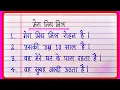 मेरा प्रिय मित्र
1. मेरा प्रिय मित्र रोहन है ।
2. उसकी उम्र 10 साल है ।
3. वह मेरे घर के पास रहता है ।
4. वह सुबह जल्दी उठता है ।